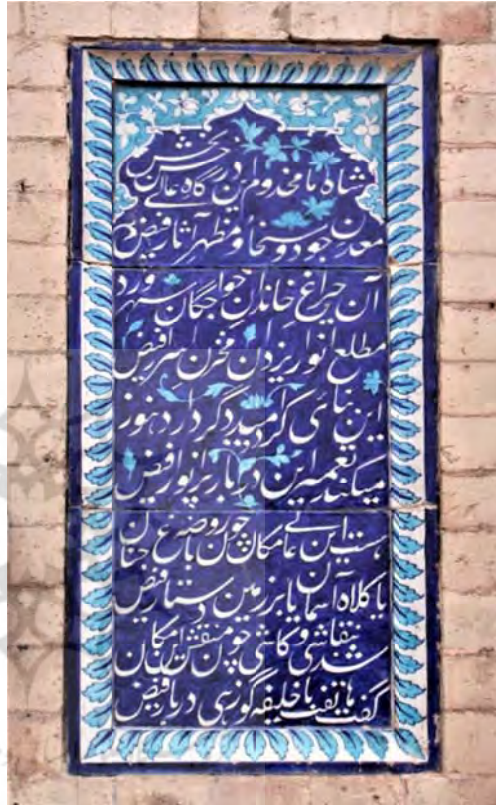 شاه ما مخدوم این درگاه عالی حسن بخش
معدن جود و سخا و مظهر آثار فیض
آن چراغ خاندان خواجگان سهرورد
مطلع انوار یزدان مخزن سر فیض
این بنای کرد میدید گر دارد هنوز
میکند تعمیر این دربار پر انوار فیض
هست این عالی مکان چون روضه باغ جنان
یا کلاه آسمان یا بر زمین دستار فیض
شد بنقاشی و کاشی چون منقش این مکان
گفت هاتف با خلیفه گو زهی دربار فیض